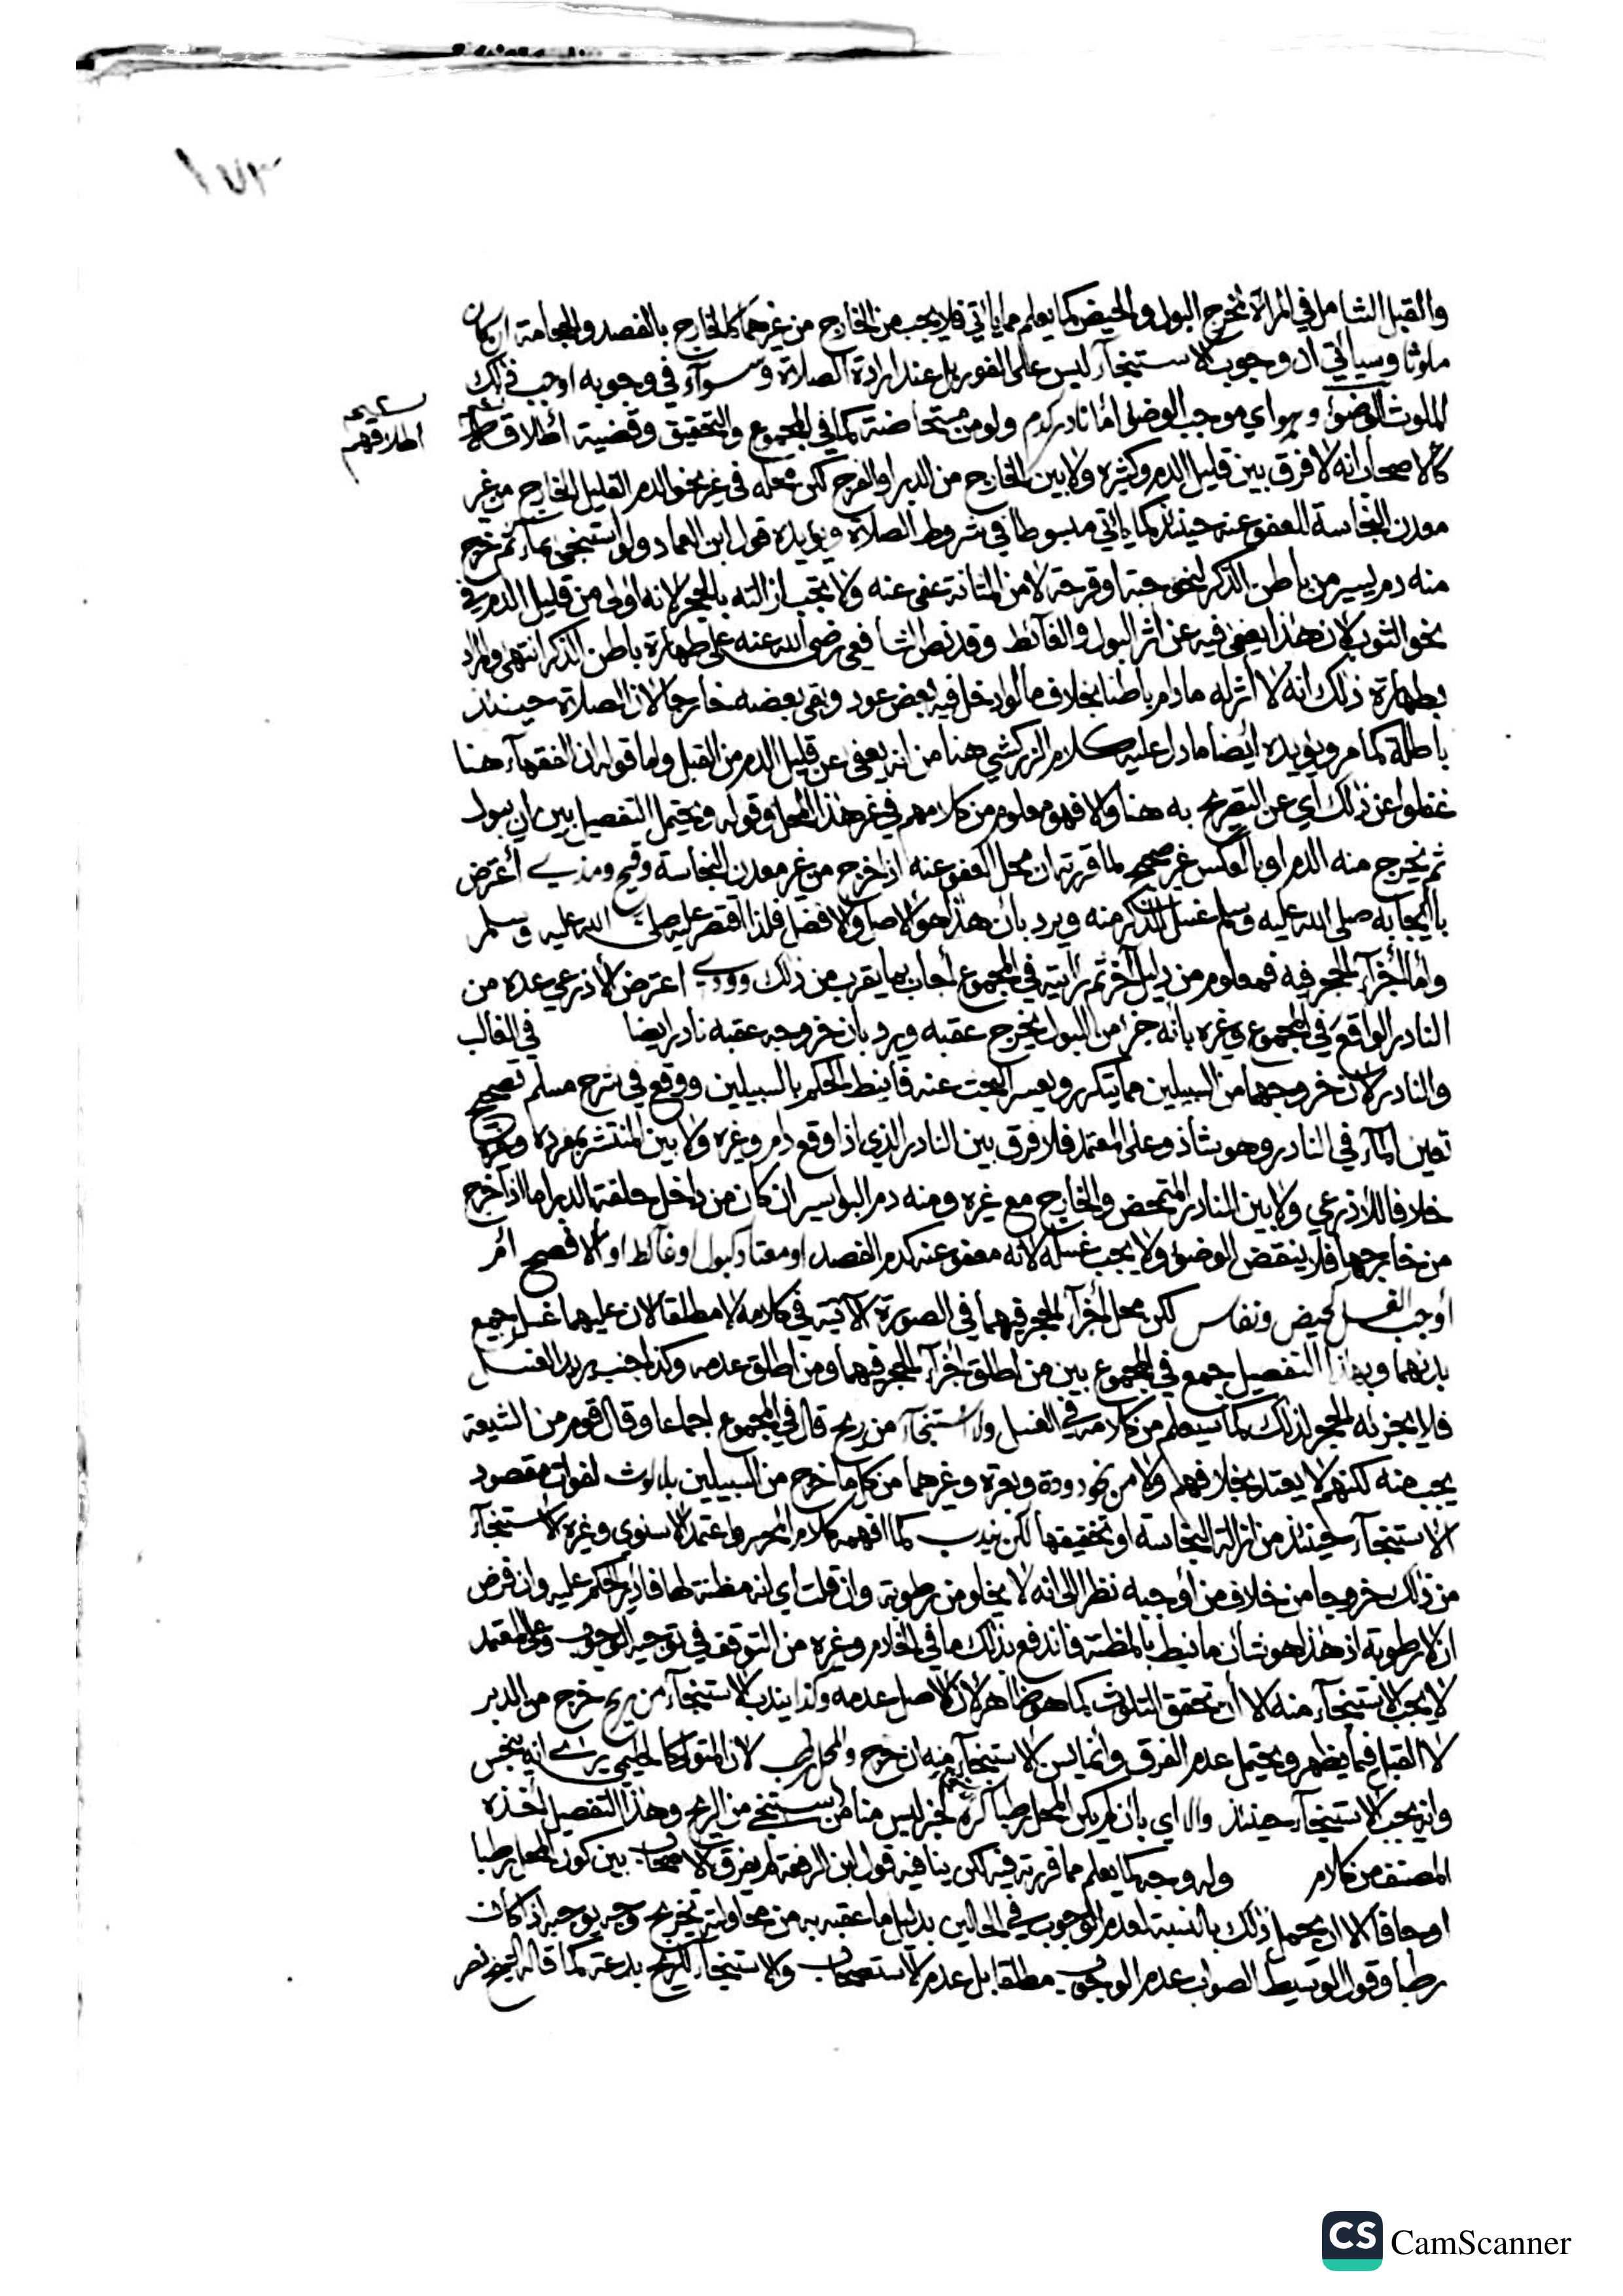 ١٧٣
والقبل الشامل في المرأة لمخرج البول والحيض كما يعلم مما يأتي فلا يجب من الخارج من غيرهما كالخارج بالفصد والحجامة ان كان
ملوثا وسيأتي أن وجوب الاستنجآء ليس على الفور بل عند ارادة الصلاة وسوآء في وجوبه اوجب ذلك
الملوث الوضوء وهو اي موجب الوضوء اما نادر كدم ولو من مستحاضة كما في المجموع والتحقيق وقضية اطلاقهم
اطلاقهم
كالاصحاب انه لا فرق بين قليل الدم وكثيره ولا بين الخارج من الدبر او الفرج لكن محله في غير نحو الدم القليل الخارج من غير
معدن النجاسة للعفو عنه حينئذ كما يأتي مبسوطا في شروط الصلاة ويؤيده قول ابن العماد ولو استنجى بماء ثم خرج
منه دم يسير من باطن الذكر لنحو حبة او قرحة لا من المثانة عفي عنه ولا يجب ازالته بالحجر لانه أولى من قليل الدم في
نحو الثوب لان هذا يعفى فيه عن اثر البول والغآئط وقد نص الشافعي رضي الله عنه على طهارة باطن الذكر انتهى والمراد
بطهارة ذلك انه لا أثر له ما دام باطنا بخلاف ما لو ادخل فيه بعض عود وبقي بعضه خارجا لان الصلاة حينئذ
باطلة كما مر ويؤيده أيضا ما دل عليه كلام الزركشي هنا من انه يعفى عن قليل الدم من القبل واما قوله ان الفقهآء هنا
غفلوا عن ذلك اي عن التصريح به هنا والا فهو معلوم من كلامهم في غير هذا المحل وقوله ويحتمل التفصيل بين ان يبول
ثم يخرج منه الدم او بالعكس غير صحيح لما قررته ان محل العفو عنه اذا خرج من غير معدن النجاسة وقيح ومذي أعترض
بايجابه صلى الله عليه وسلم غسل الذكر منه ويرد بأن هذا هو الاصل والافضل فلذا اقتصر عليه صلى الله عليه وسلم
وأما اجزآء الحجر فيه فمعلوم من دليل آخر ثم رأيته في المجموع أجاب بما يقرب من ذلك وودي اعترض الأذرعي عده من
النادر الواقع في المجموع وغيره بأنه جزء من البول يخرج عقبه ويرد بان خروجه عقبه نادر ايضا في الغالب
والنادر لان خروجهما من السبيلين مما يتكرر ويعسر البحث عنه فأنيط الحكم بالسبيلين ووقع في شرح مسلم تصحيح
تعين المآء في النادر وهو شاذ وعلى المعتمد فلا فرق بين النادر الذي اذا وقع دام وغيره ولا بين المنتشر بمفرده وغيره
خلافا للأذرعي ولا بين النادر المتمحض والخارج مع غيره ومنه دم البواسير ان كان من داخل حلقة الدبر اما اذا خرج
من خارجها فلا ينقض الوضوء ولا يجب غسله لانه معفو عنه كدم الفصد او معتاد كبول او غآئط او الافصح أم
أوجب الغسل كحيض ونفاس لكن محل اجزآء الحجر فيهما في الصورة الآتية في كلامه لا مطلقا لان عليهما غسل جميع
بدنهما وبهذا التفصيل جمع في المجموع بين من اطلق اجزآء الحجر فيهما ومن اطلق عدمه وكذا جنب يريد الغسل
فلا يجزيه الحجر لذلك كما سيعلم من كلامه في الغسل ولا استنجآء من ريح قال في المجموع اجماعا وقال قوم من الشيعة
يجب منه لكنهم لا يعتد بخلافهم ولا من نحو دودة وبعرة وغيرهما من كل ما خرج من السبيلين بلا لوث لفوات مقصود
الاستنجآء حينئذ من ازالة النجاسة او تخفيفها لكن يندب كما افهمه كلام المحرر واعتمده الاسنوي وغيره الاستنجآء
من ذلك خروجا من خلاف من أوجبه نظرا الى انه لا يخلو من رطوبة وان قلت اي لانه مظنة لها فادير الحكم عليه وان فرض
ان لا رطوبة اذ هذا هو شأن ما نيط بالمظنة فاندفع بذلك ما في الخادم وغيره من التوقف في توجيه الوجوب وعلى المعتمد
لا يجب الاستنجآء منه الا أن تحقق التلوث كما هو ظاهر لان الاصل عدمه وكذا يندب الاستنجآء من ريح خرج من الدبر
لا القبل فيما يظهر ويحتمل عدم الفرق وانما يسن الاستنجآء منه ان خرج والمحل رطب لان المتولي كالحليمي يرى انه ينجس
وانه يجب الاستنجآء حينئذ والا اي بان لم يكن المحل رطبا كره لخبر ليس منا من يستنجي من الريح وهذا التفصيل أخذه
المصنف من كلام وله وجه كما يعلم مما قررته فيه لكن ينافيه قول ابن الرفعة لم يفرق الاصحاب بين كون المحل رطبا
او جافا الا ان يحمل ذلك بالنسبة لعدم الوجوب في الحالين بدليل ما عقبه به من محاولته تخريج وجه بوجوبه اذا كان
رطبا وقول الوسيط الصواب عدم الوجوب مطلقا بل عدم الاستحباب والاستنجآء للريح بدعة كما قاله الشيخ نصر
CS CamScanner